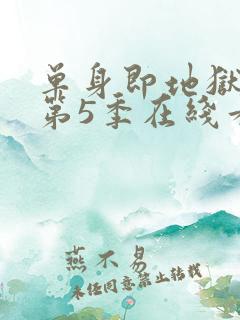 单身即地狱
第5季在线
燕不易
未经同意禁止转载